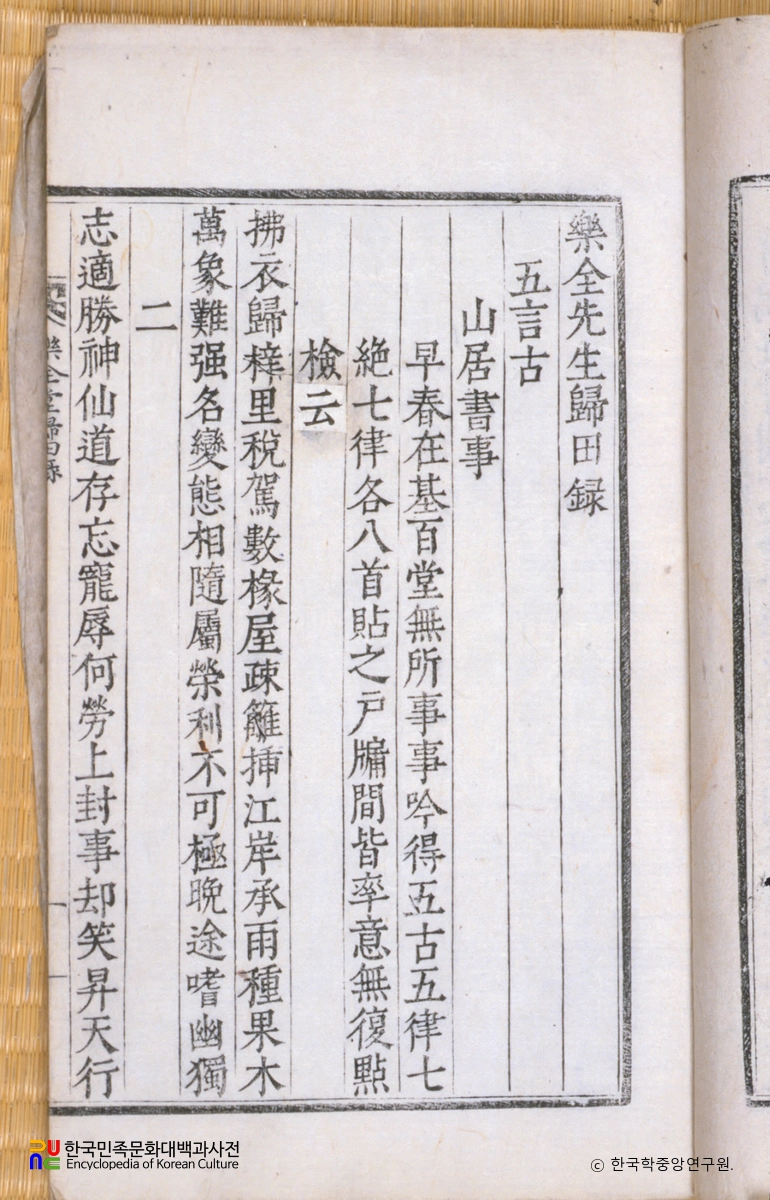 樂全先生歸田録
五言古
山居書事
早春在基百堂無所事事吟得五古五律七
絶七律各八首貼之戸牖間皆率意無復點
檢云
拂衣歸梓里稅駕數椽屋疎籬揷江岸承雨種果木
萬象難强名變態相隨屬榮利不可極晩途嗜幽獨
二
志適勝神仙道存忘寵辱何勞上封事却笑昇天行
樂全堂歸田录
한국민족문화대백과사전
Encyclopedia of Korean Culture
ⓒ 한국학중앙연구원.